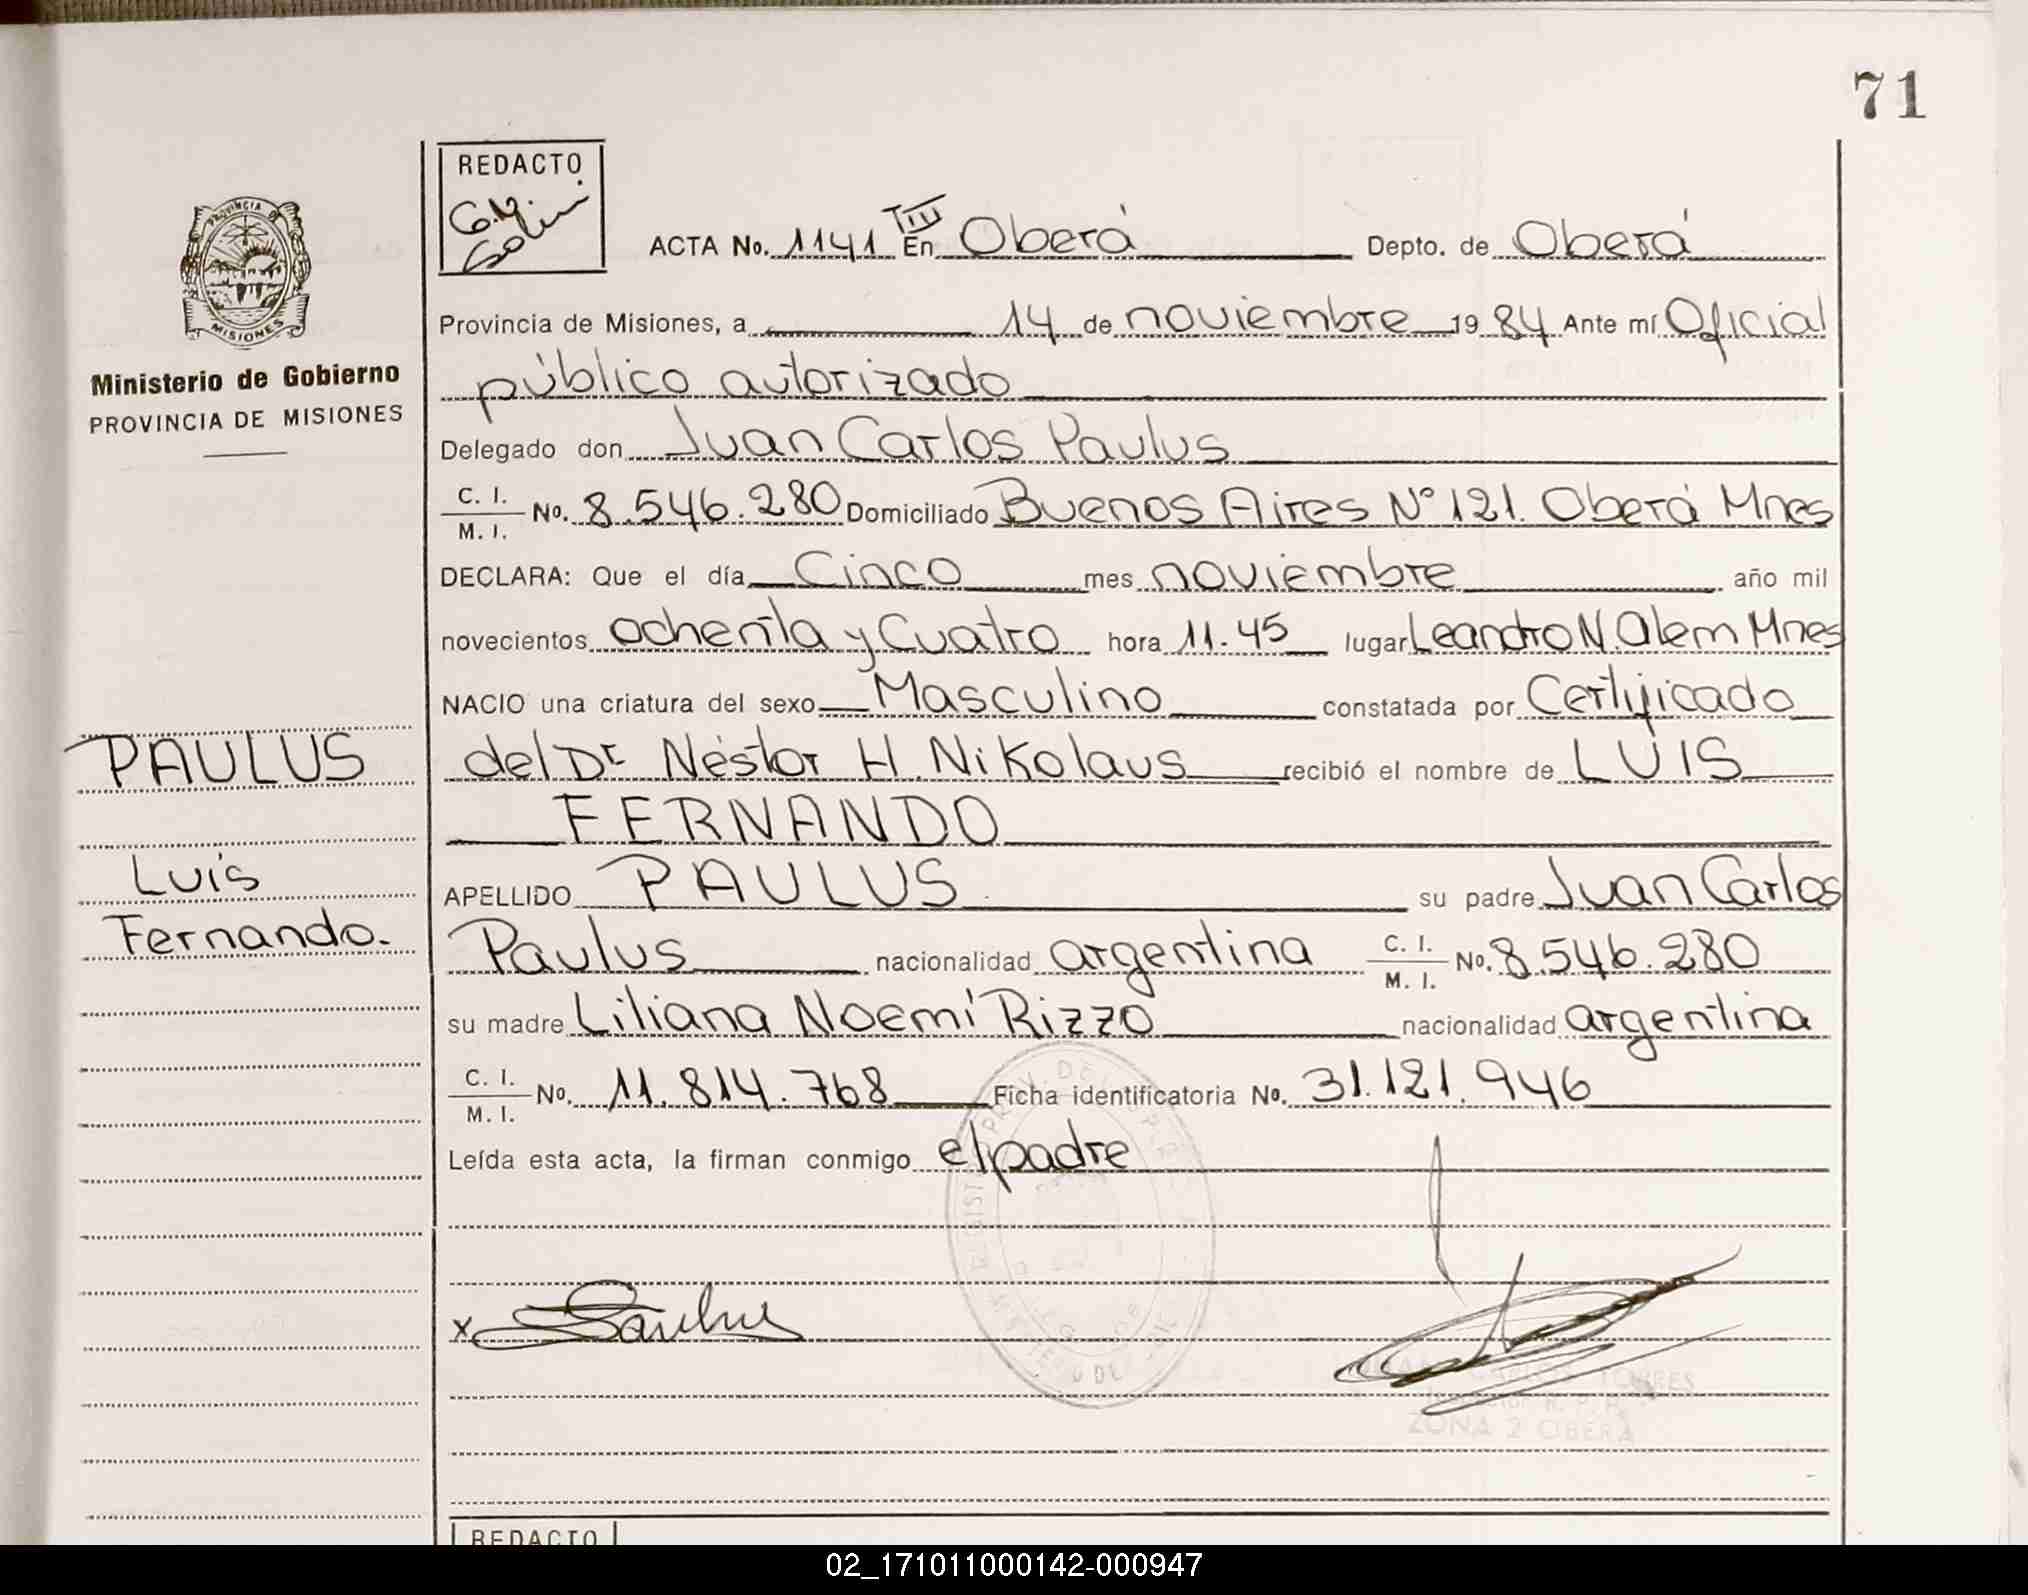 71
REDACTO
PROVINCIA DE
MISIONES
Ministerio de Gobierno
PROVINCIA DE MISIONES
ACTA No. 1141 TIII En Oberá Depto. de Oberá
Provincia de Misiones, a 14 de noviembre 1984 Ante mí Oficial
público autorizado
Delegado don Juan Carlos Paulus
C. I.
M. I. No. 8.546.280 Domiciliado Buenos Aires N° 121. Oberá Mnes
DECLARA: Que el día Cinco mes noviembre año mil
novecientos ochenta y Cuatro hora 11.45 lugar Leandro N. Alem Mnes
NACIO una criatura del sexo Masculino constatada por Certificado
del Dr Néstor H. Nikolaus recibió el nombre de LUIS
FERNANDO
APELLIDO PAULUS su padre Juan Carlos
Paulus nacionalidad argentina C. I.
M. I. No. 8.546.280
su madre Liliana Noemí Rizzo nacionalidad argentina
C. I.
M. I. No. 11.814.768 Ficha identificatoria No. 31.121.946
Leída esta acta, la firman conmigo el padre
PAULUS
Luis
Fernando.
x Paulus
CARLOS TORRES
ZONA 2 OBERA
REDACTO
02_171011000142-000947